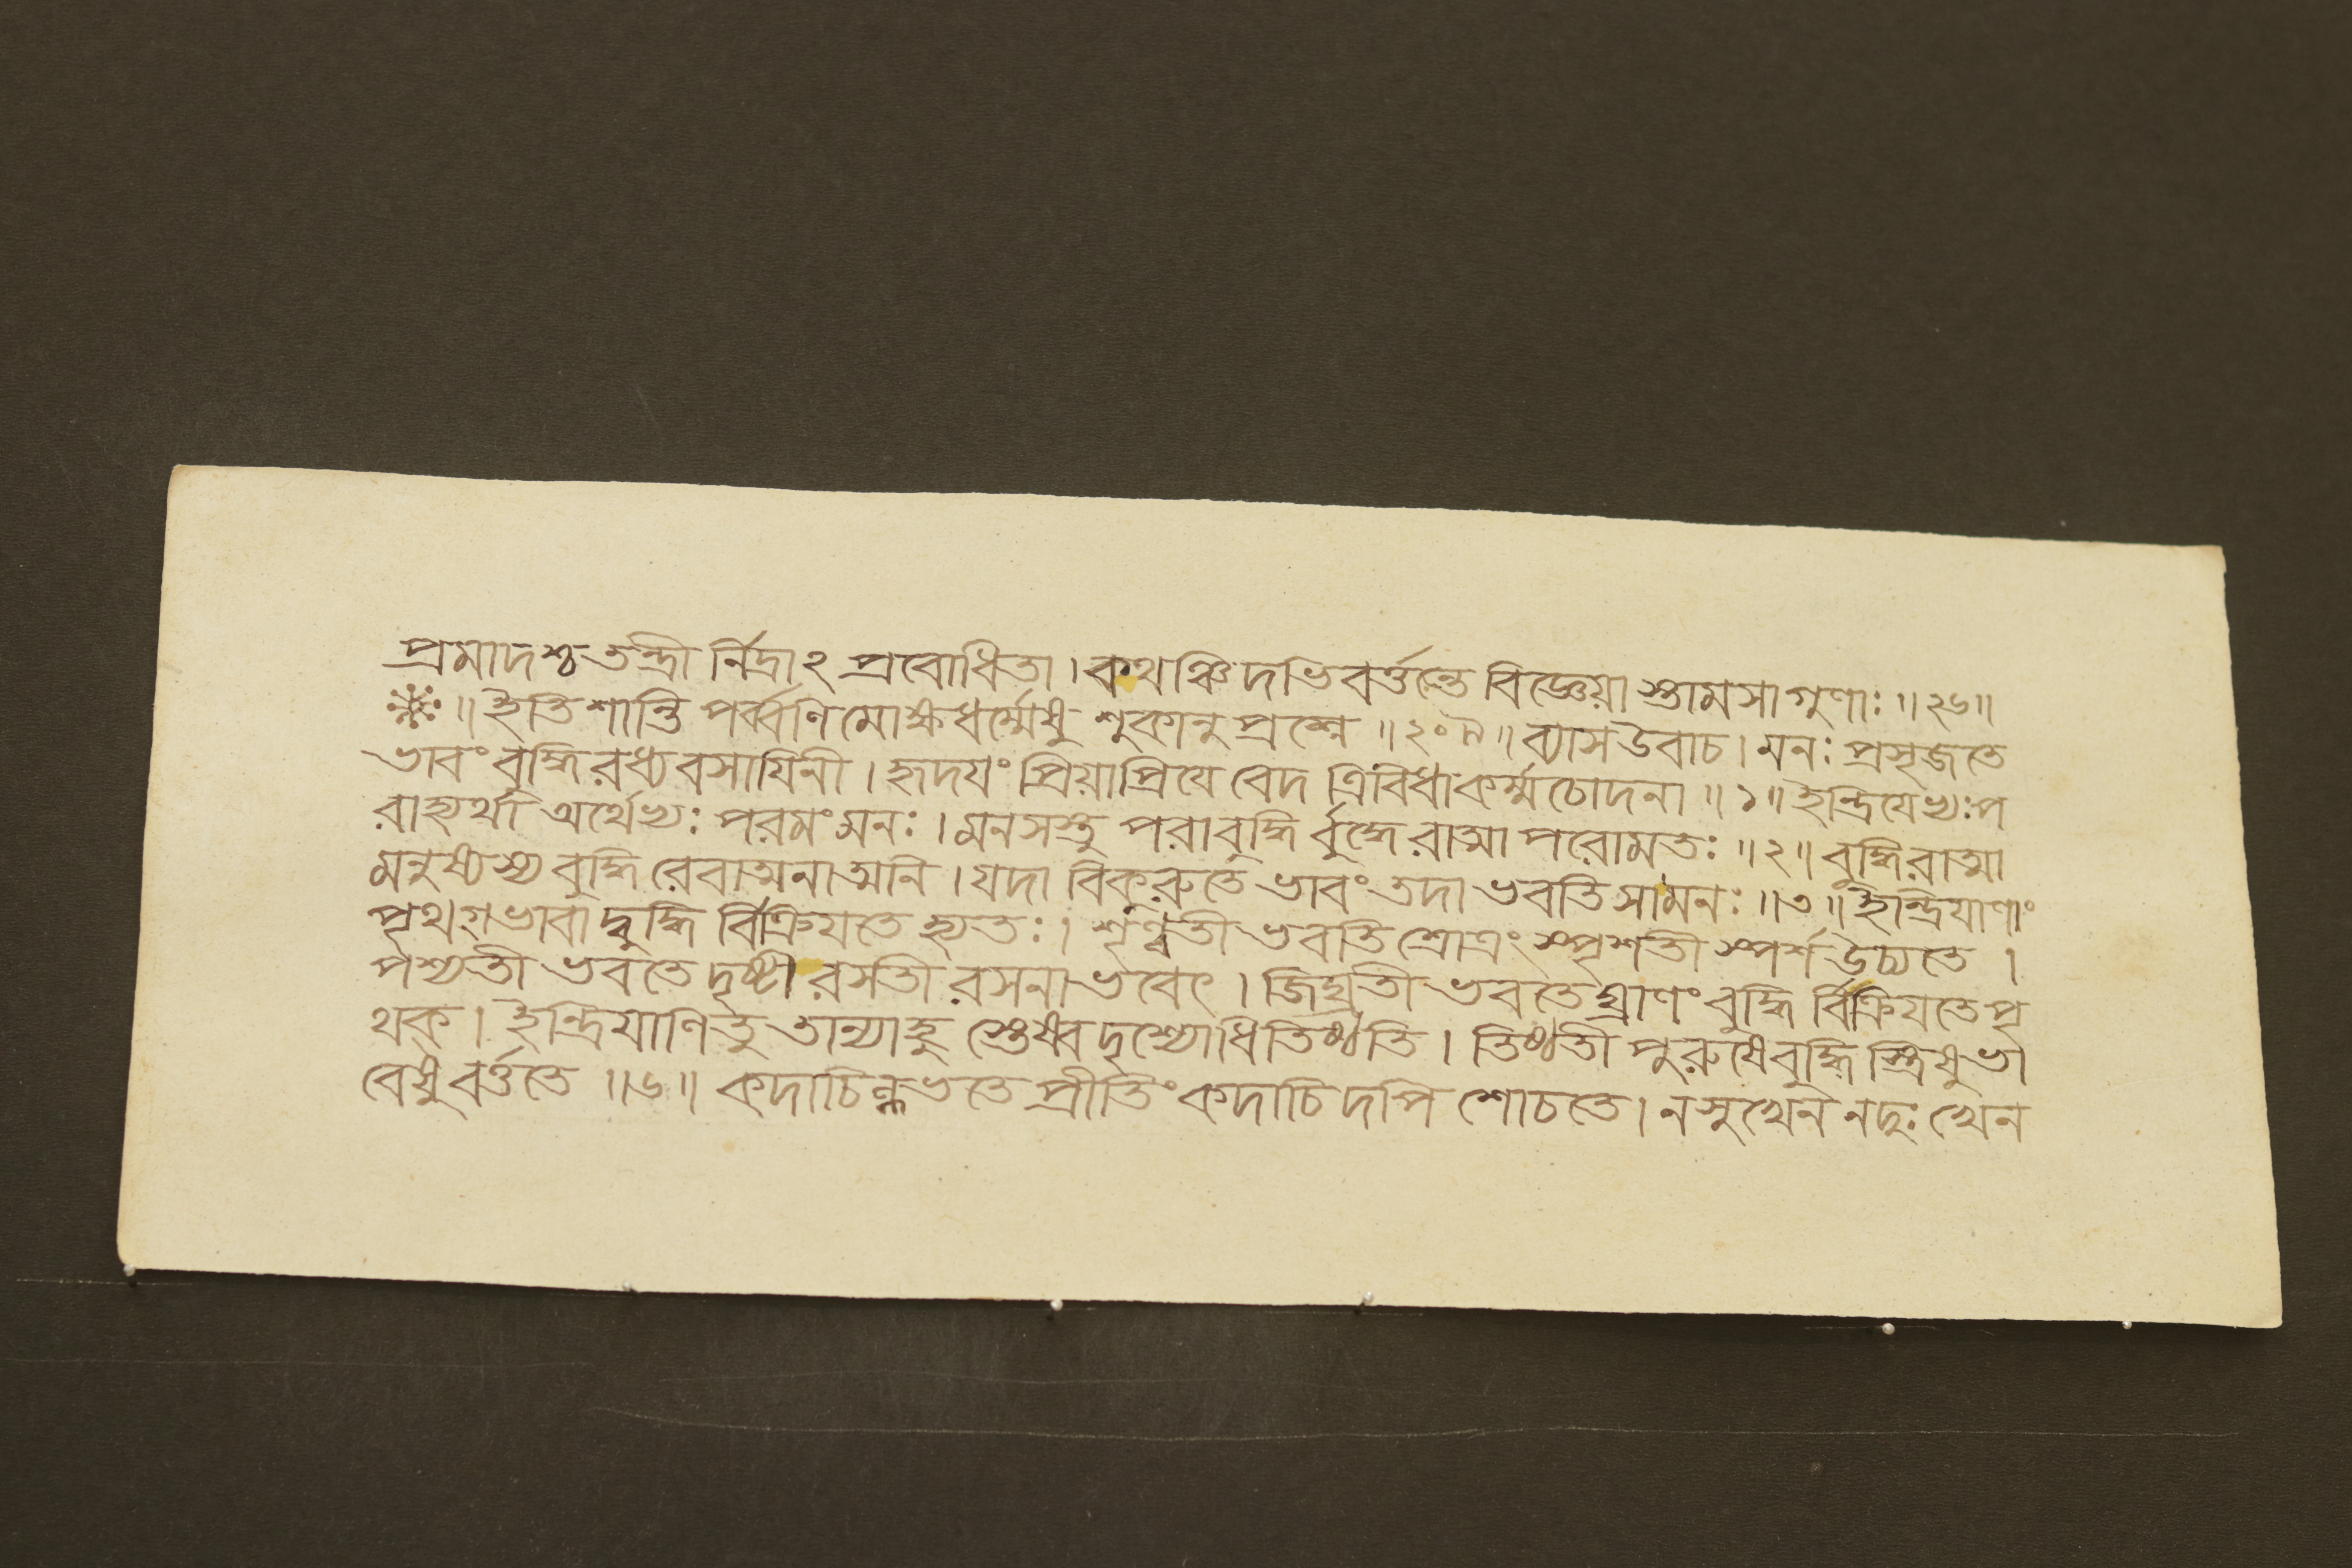 প্রমাদশ্চ তন্দ্রী র্নিদ্রাঽ প্রবোধিতা । কথঞ্চিদভিবর্ত্তন্তে বিজ্ঞেয়া স্তামসা গুণাঃ ॥ ২৬ ॥
॥ ইতি শান্তি পর্ব্বণি মোক্ষধর্ম্মেষু শুকানু প্রশ্নে ॥ ২০৪ ॥ ব্যাস উবাচ । মনঃ প্রসৃজতে
ভাবং বুদ্ধি রধ্যবসায়িনী । হৃদয়ং প্রিয়াপ্রিয়ে বেদ ত্রিবিধা কর্ম্ম চোদনা ॥ ১ ॥ ইন্দ্রিয়েভ্যঃ প
রাহ্যর্থা অর্থেভ্যঃ পরমং মনঃ । মনসস্তু পরা বুদ্ধি র্বুদ্ধে রাত্মা পরোমতঃ ॥ ২ ॥ বুদ্ধি রাত্মা
মনুষ্যস্য বুদ্ধি রেবাত্মনাত্মনি । যদা বিকুরুতে ভাবং তদা ভবতি সা মনঃ ॥ ৩ ॥ ইন্দ্রিয়াণাং
পৃথগ্ভাবা দ্বুদ্ধি র্বিক্রিয়তে হ্যতঃ । শৃণ্বতী ভবতি শ্রোত্রং স্পৃশতী স্পর্শ উচ্যতে ।
পশ্যতী ভবতে দৃষ্টী রসতী রসনা ভবেৎ । জিঘ্রতী ভবতে ঘ্রাণং বুদ্ধি র্বিক্রিয়তে পৃ
থক্ । ইন্দ্রিয়াণি তু তান্যাহু স্তেষ্বদৃশ্যোধিতিষ্ঠতি । তিষ্ঠতী পুরুষে বুদ্ধি স্ত্রিষু ভা
বেষু বর্ত্ততে ॥ ৬ ॥ কদাচিল্লভতে প্রীতিং কদাচি দপি শোচতে । ন সুখেন ন দুঃখেন